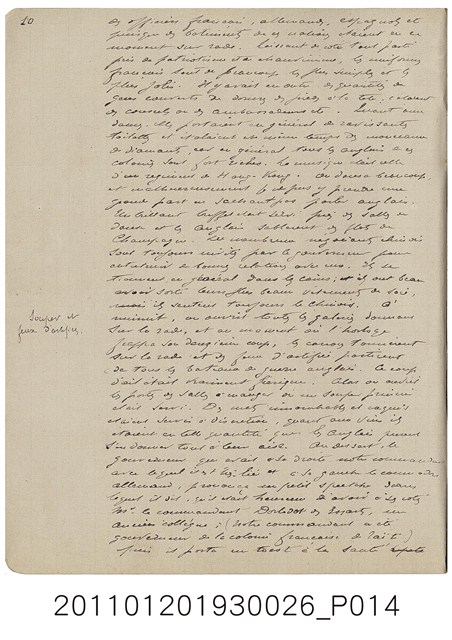 10
des officiers français, allemands, espagnols et
puisque des bâtiments de ces nations étaient en ce
moment sur rade. Laissant de côté tout parti
pris de patriotisme et de chauvinisme, les uniformes
français sont de beaucoup les plus simples et les
plus jolis. Il y avait en outre des quantités de
gens couverts de des pieds à la tête, c'étaient
des consuls ou des ambassadeurs. Quant aux
dames, elles portaient en général de ravissantes
toilettes et étaient en même temps des morceaux
de diamants, car en général tous les anglais des
colonies sont fort riches. La musique était celle
d'un régiment de Hong-Kong. On dansa beaucoup,
et malheureusement je ne pus y prendre une
grande part en sachant pas parler anglais.
Un brillant buffet était servi près des salles de
danse et les Anglais sablèrent des flots de
Champagne. De nombreux négociants chinois
sont toujours invités par le gouverneur pour
entretenir de bonnes relations avec eux. Ils se
trouvent en général dans les coins, et ils ont beau
avoir sorti leurs plus beaux vêtements de soie,
mais ils sentent toujours le chinois. A
minuit, on ouvrit toutes les galeries donnant
Souper et
feux d'artifices.
sur la rade, et au moment où l'horloge
frappa son douzième coup, les canons tonnèrent
sur la rade et des feux d'artifice partirent
de tous les bateaux de guerre anglais. Le coup
d'œil était vraiment féerique. Alors on ouvrit
les portes des salles à manger où un souper
était servi. Des mets innombrables et exquis
étaient servis à discrétion, quant aux vins ils
étaient en telle quantité que les Anglais purent
s'en donner tout à leur aise. Au dessert, le
gouverneur qui avait à sa droite notre commandant
avec lequel il est très lié et à sa gauche le commandant
allemand, prononça un petit speech dans
lequel il dit, qu'il était heureux d'avoir à ses côtés
Mr. le commandant Dorlodot des Essarts, un
ancien collègue; (Notre commandant a été
gouverneur de la colonie française de Taïti)
puis il porta un toast à la santé
201101201930026_P014